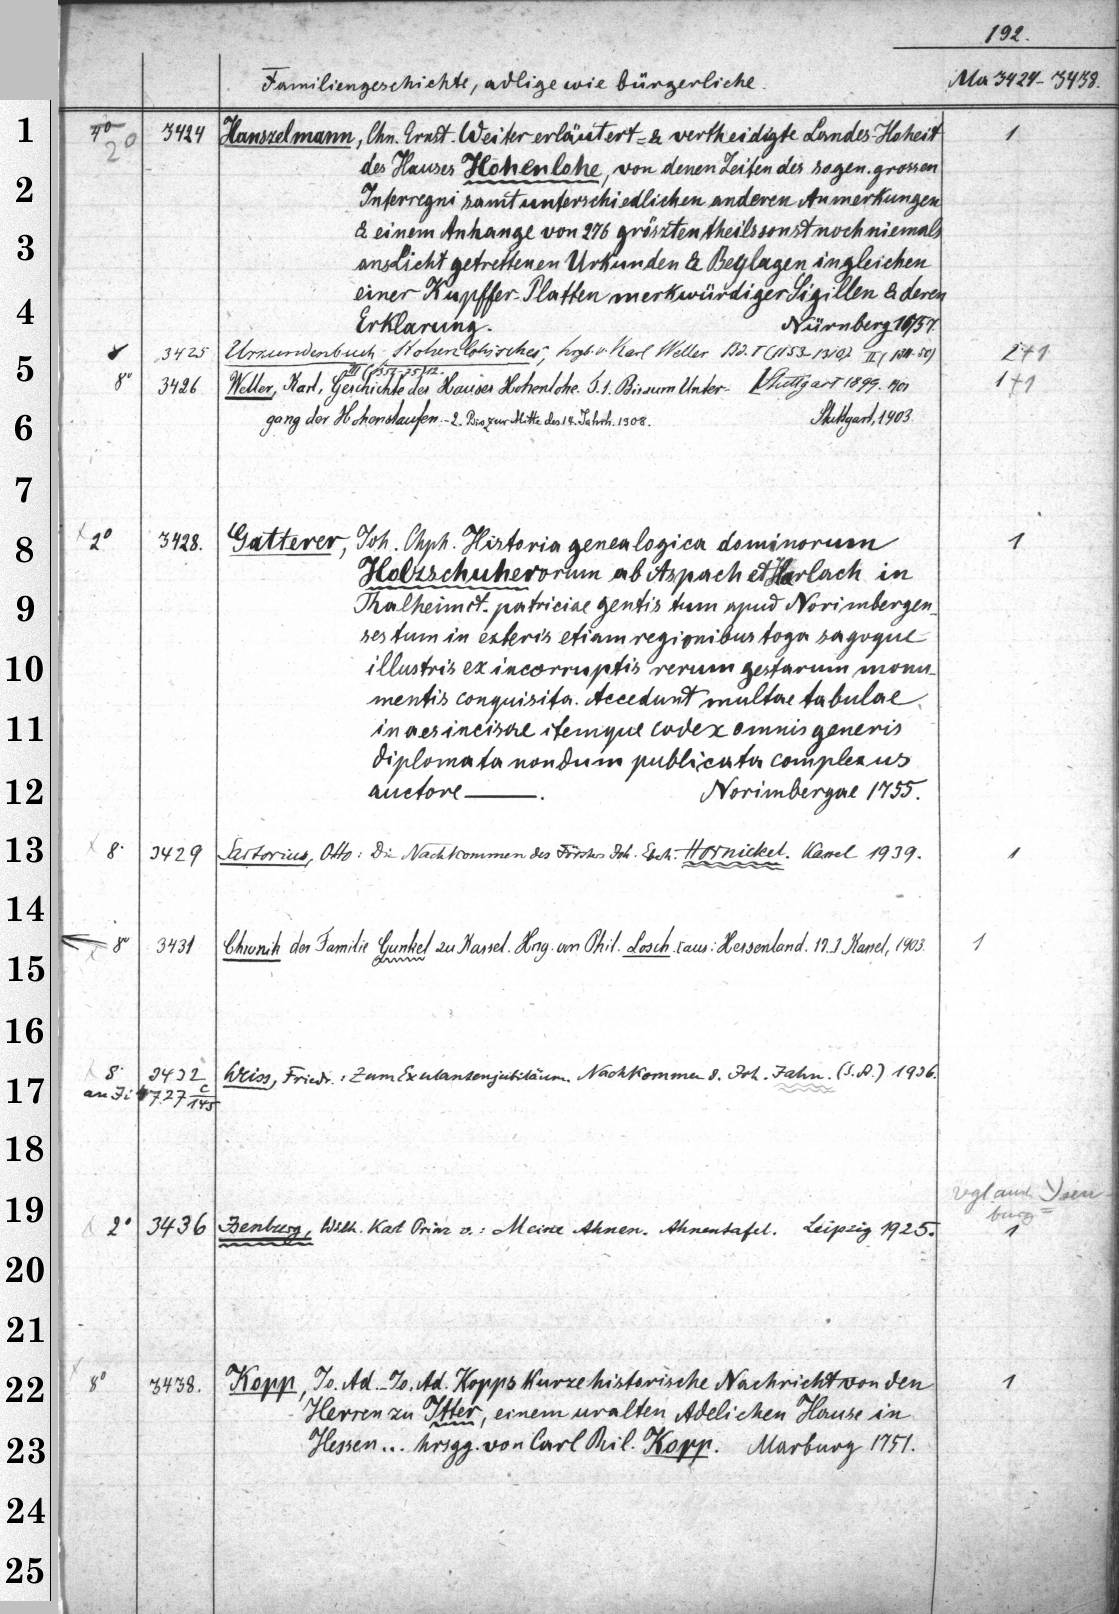 192.
Familiengeschichte, adlige wie bürgerliche. Ma 3424-3438.
1 4° 3424 Hanszelmann, Chn. Ernst. Weiter erläutert- & vertheidigte Landes-Hoheit 1
2°
des Hauses Hohenlohe, von denen Zeiten des sogen. grossen
2 Interregni samt unterschiedlichen anderen Anmerkungen
3 & einem Anhange von 276 grösztentheils sonst noch niemals
ans Licht getrettenen Urkunden & Beylagen ingleichen
4 einer Kupffer-Platten merkwürdiger Sigillen & deren
Erklarung. Nürnberg 1757.
5 3425 Urkundenbuch, Hohenlohisches, hrgb. v. Karl Weller Bd. I (1153-1310) II (1311-50) 2+1
III (1351-75) 12.
8° 3426 Weller, Karl, Geschichte des Hauses Hohenlohe. T. 1. Bis zum Unter- Stuttgart 1899-1901 1+1
6 gang der Hohenstaufen. - 2. Bis zur Mitte des 14. Jahrh. 1908. Stuttgart, 1903.
7
8 2° 3428. Gatterer, Joh. Chph. Historia genealogica dominorum 1
Holzschuherorum ab Aspach et Harlach in
9 Thalheim ct. patriciae gentis tum apud Norimbergen-
ses tum in exteris etiam regionibus toga sagoque
10 illustris ex incorruptis rerum gestarum monu-
mentis conquisita. Accedunt multae tabulae
11 in aes incisae itemque codex omnis generis
diplomata nondum publicata complexus
12 auctore ——. Norimbergae 1755.
13 8° 3429 Sartorius, Otto: Die Nachkommen des Försters Joh. Hornickel. Kassel 1939. 1
14
8° 3431 Chronik der Familie Gunkel zu Kassel. Hrsg. von Phil. Losch. [aus: Hessenland. 17.] Kassel, 1903. 1
15
16
8° 3432 Weiss, Friedr.: Zum Exulantenjubiläum. Nachkommen d. Joh. Jahn. (S.A.) 1936.
17 an 727 c/145
18
19 vgl auch Ysen
burg=
2° 3436 Isenburg, Wilh. Karl Prinz v.: Meine Ahnen. Ahnentafel. Leipzig 1925. 1
20
21
22 8° 3438. Kopp, Jo. Ad. Jo. Ad. Kopps Kurze historische Nachricht von den 1
Herren zu Itter, einem uralten Adelichen Hause in
23 Hessen... hrsgg. von Carl Phil. Kopp. Marburg 1751.
24
25